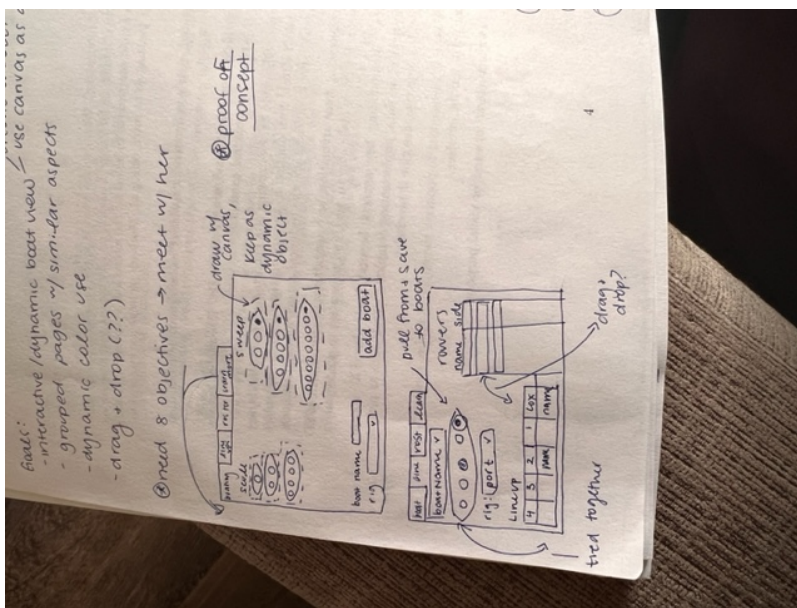 Goals:
- interactive/dynamic boat view
use canvas as
- grouped pages w/ similar aspects
- dynamic color use
- drag + drop (??)
need 8 objectives → meet w/ her
proof off
consept
scull
sweep
draw w/
canvas,
keep as
dynamic
object
boat name
rig
add boat
pull from + save
to boats
boat name v
rig: port v
rowers
name side
Lineup
4 3 2 1 cox
name
drag +
drop?
tied together
4